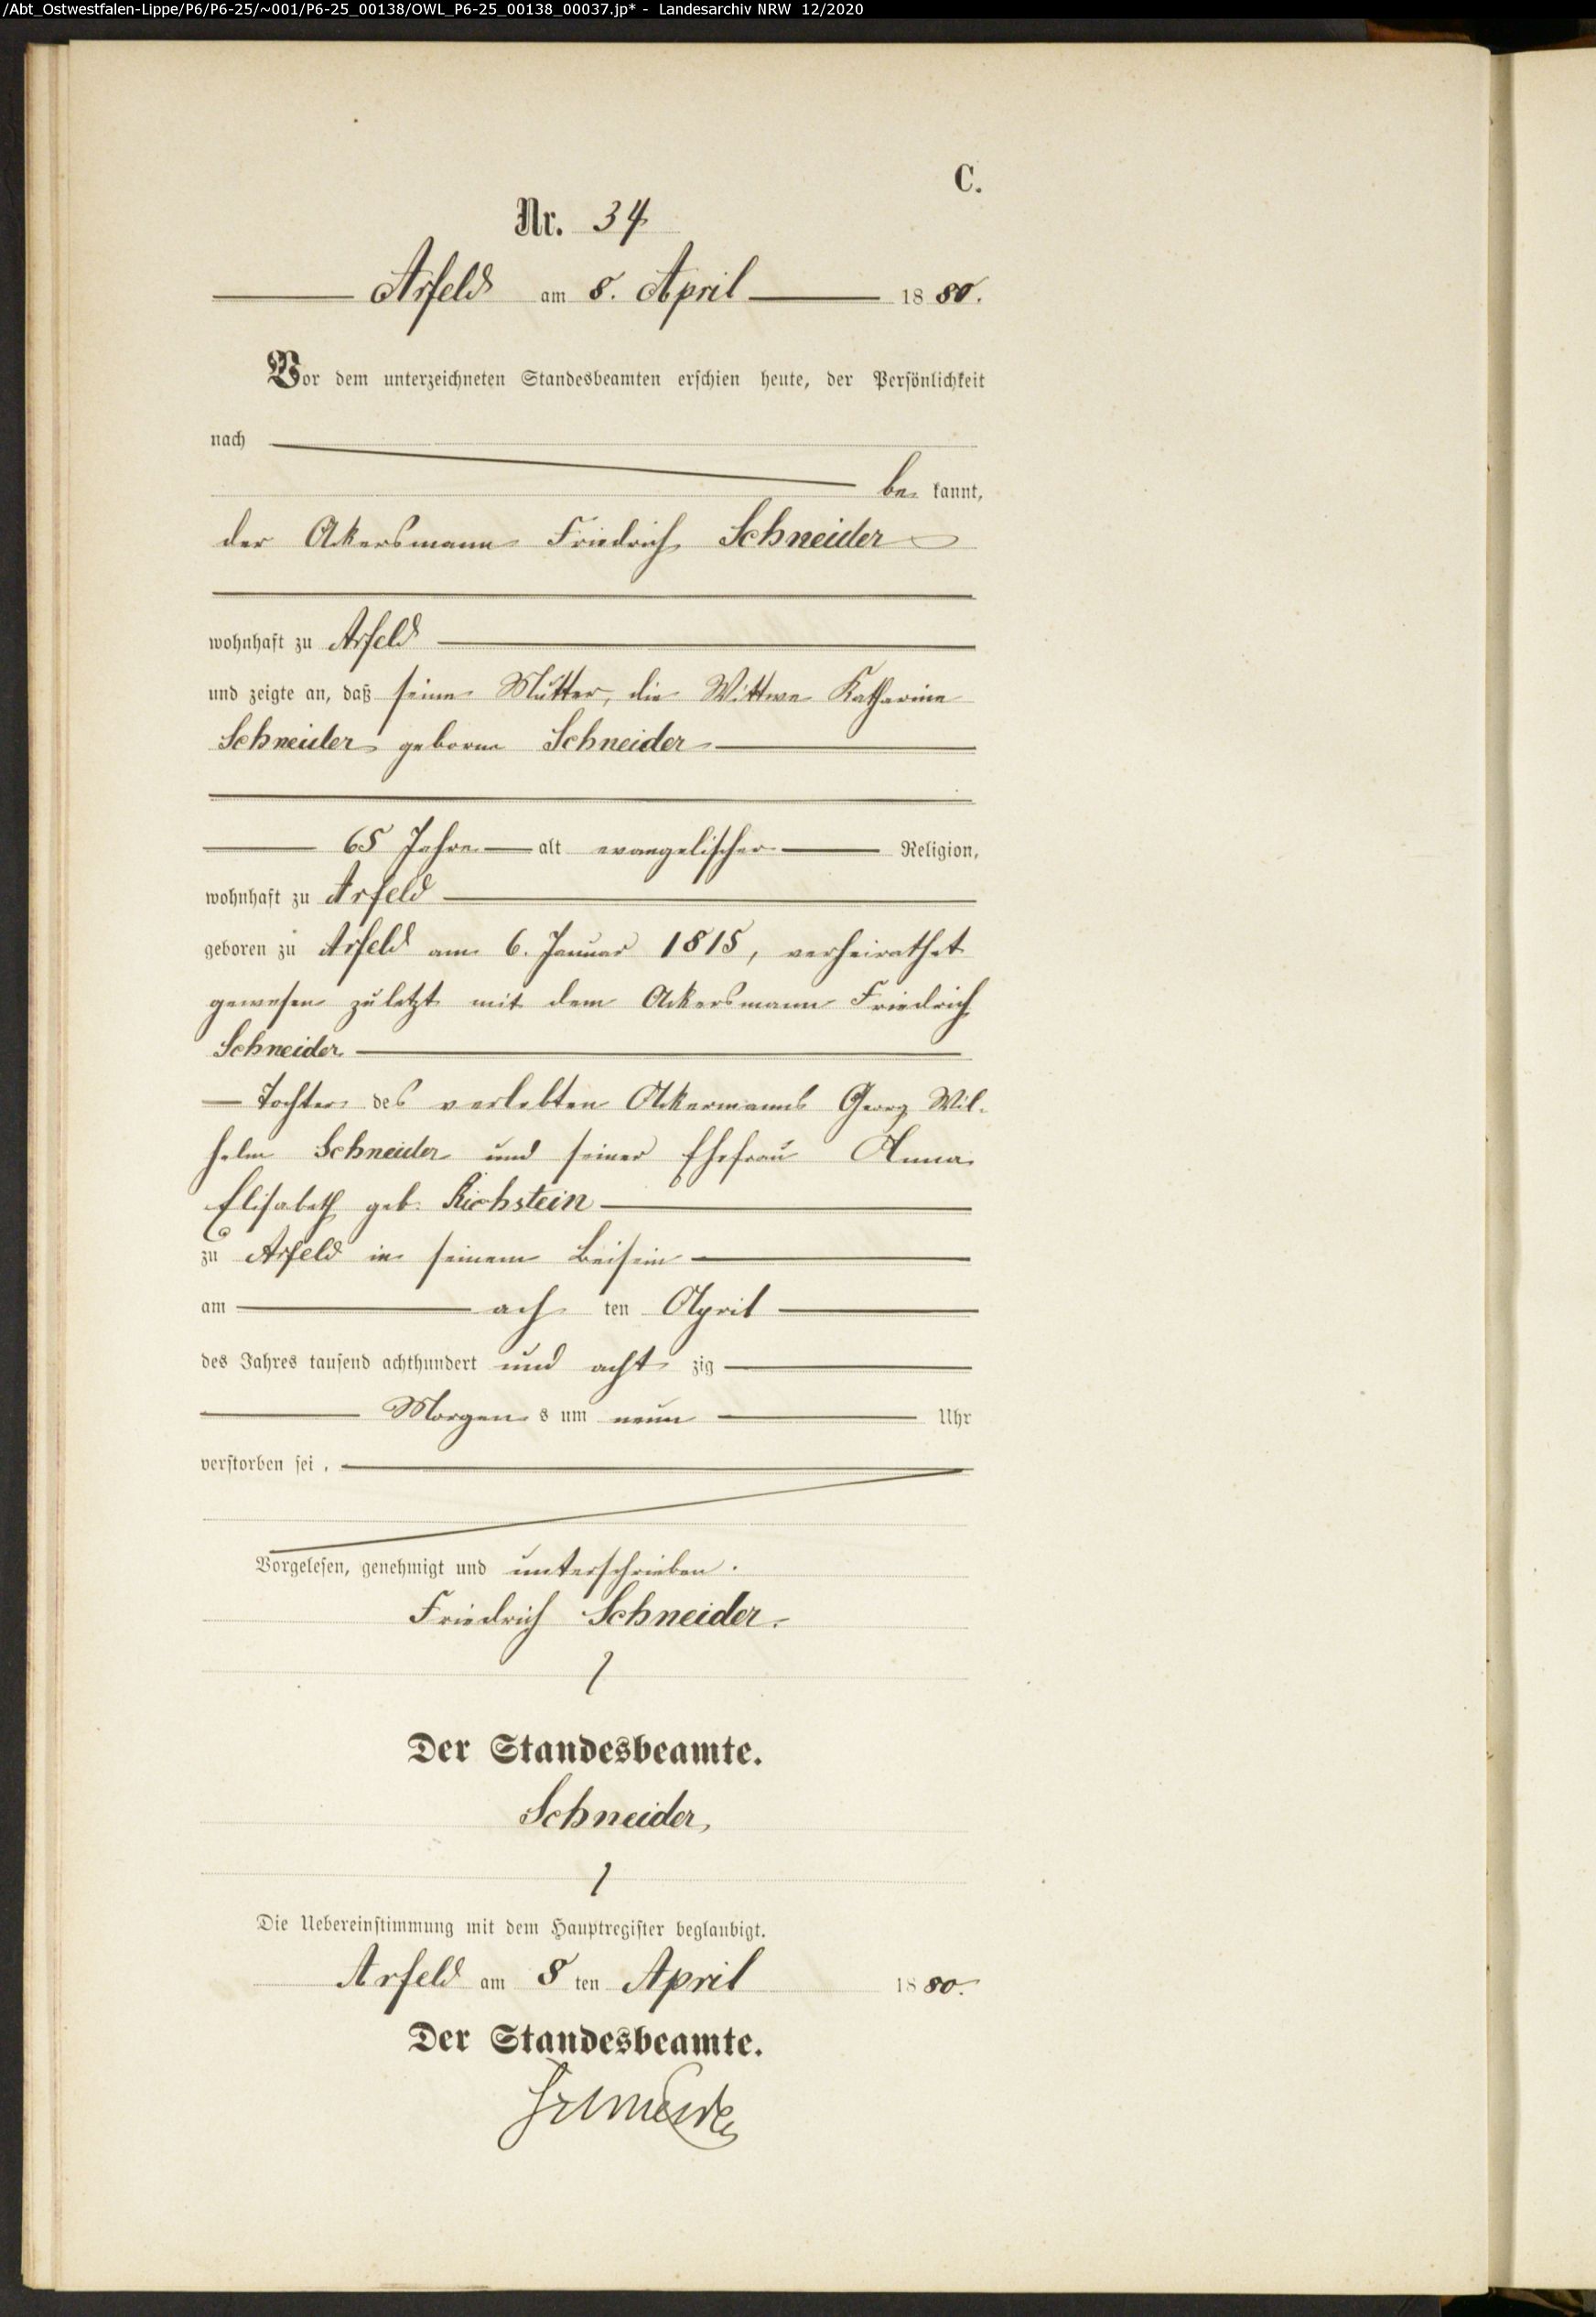 /Abt_Ostwestfalen-Lippe/P6/P6-25/~001/P6-25_00138/OWL_P6-25_00138_00037.jp* - Landesarchiv NRW 12/2020
C.
Nr. 34
Arfeld am 8. April 1880.
Vor dem unterzeichneten Standesbeamten erschien heute, der Persönlichkeit
nach
be kannt,
der Ackersmann Friedrich Schneider
wohnhaft zu Arfeld
und zeigte an, daß seine Mutter, die Wittwe Katharine
Schneider geborne Schneider
65 Jahre alt evangelischer Religion,
wohnhaft zu Arfeld
geboren zu Arfeld am 6. Januar 1815, verheirathet
gewesen zuletzt mit dem Ackersmann Friedrich
Schneider
Tochter des verlebten Ackermanns Georg Wil-
helm Schneider und seiner Ehefrau Anna
Elisabeth geb. Richstein
zu Arfeld in seinem Beisein
am ach ten April
des Jahres tausend achthundert und acht zig
Morgen s um neun Uhr
verstorben sei.
Vorgelesen, genehmigt und unterschrieben.
Friedrich Schneider.
Der Standesbeamte.
Schneider,
Die Uebereinstimmung mit dem Hauptregister beglaubigt.
Arfeld am 8 ten April 1880.
Der Standesbeamte.
Schneider